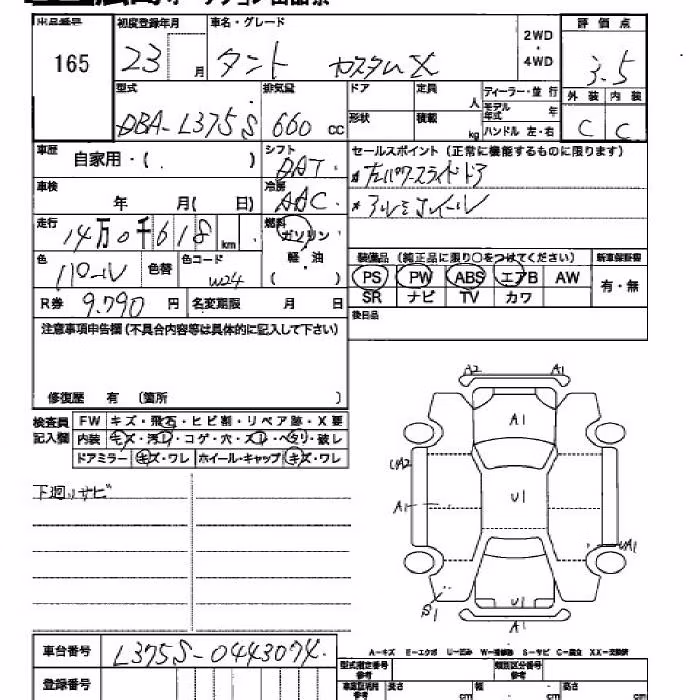 初度登録年月 車名・グレード 2WD・4WD 評価点
165 23 月 タント カスタムX 3.5
型式 排気量 ドア 定員 人 ディーラー・並行 外装 内装
DBA-L375S 660 cc 形状 積載 kg モデル年式 年 ハンドル 左・右 C C
車歴 自家用・( ) シフト DAT セールスポイント (正常に機能するものに限ります)
車検 年 月( 日) 冷房 AAC
走行 14万0千618 km 燃料 ガソリン ＊アルミホイール
軽・油
色 パール 色替 色コード W24 ( ) 装備品 (純正品に限り○をつけてください) 新車保証書
PS PW ABS エアB AW 有・無
R券 9.790 円 名変期限 月 日 SR ナビ TV カワ
注意事項申告欄(不具合内容等は具体的に記入して下さい) 後日品
修復歴 有 (箇所 )
検査員記入欄 FW キズ・飛石・ヒビ割・リペア跡・X要
内装 キズ・汚レ・コゲ・穴・スレ・ヘタリ・破レ
ドアミラー キズ・ワレ ホイール・キャップ キズ・ワレ
下廻りサビ
A2 A1
A1
UA2
A1 U1
UA1
S1 U1
A1
車台番号 L375S-0443074
A-キズ E-エクボ U-凹み W-補修跡 S-サビ C-腐食 XX-交換済
登録番号 型式指定番号 参考 類別区分番号 参考
長さ cm 幅 cm 高さ cm